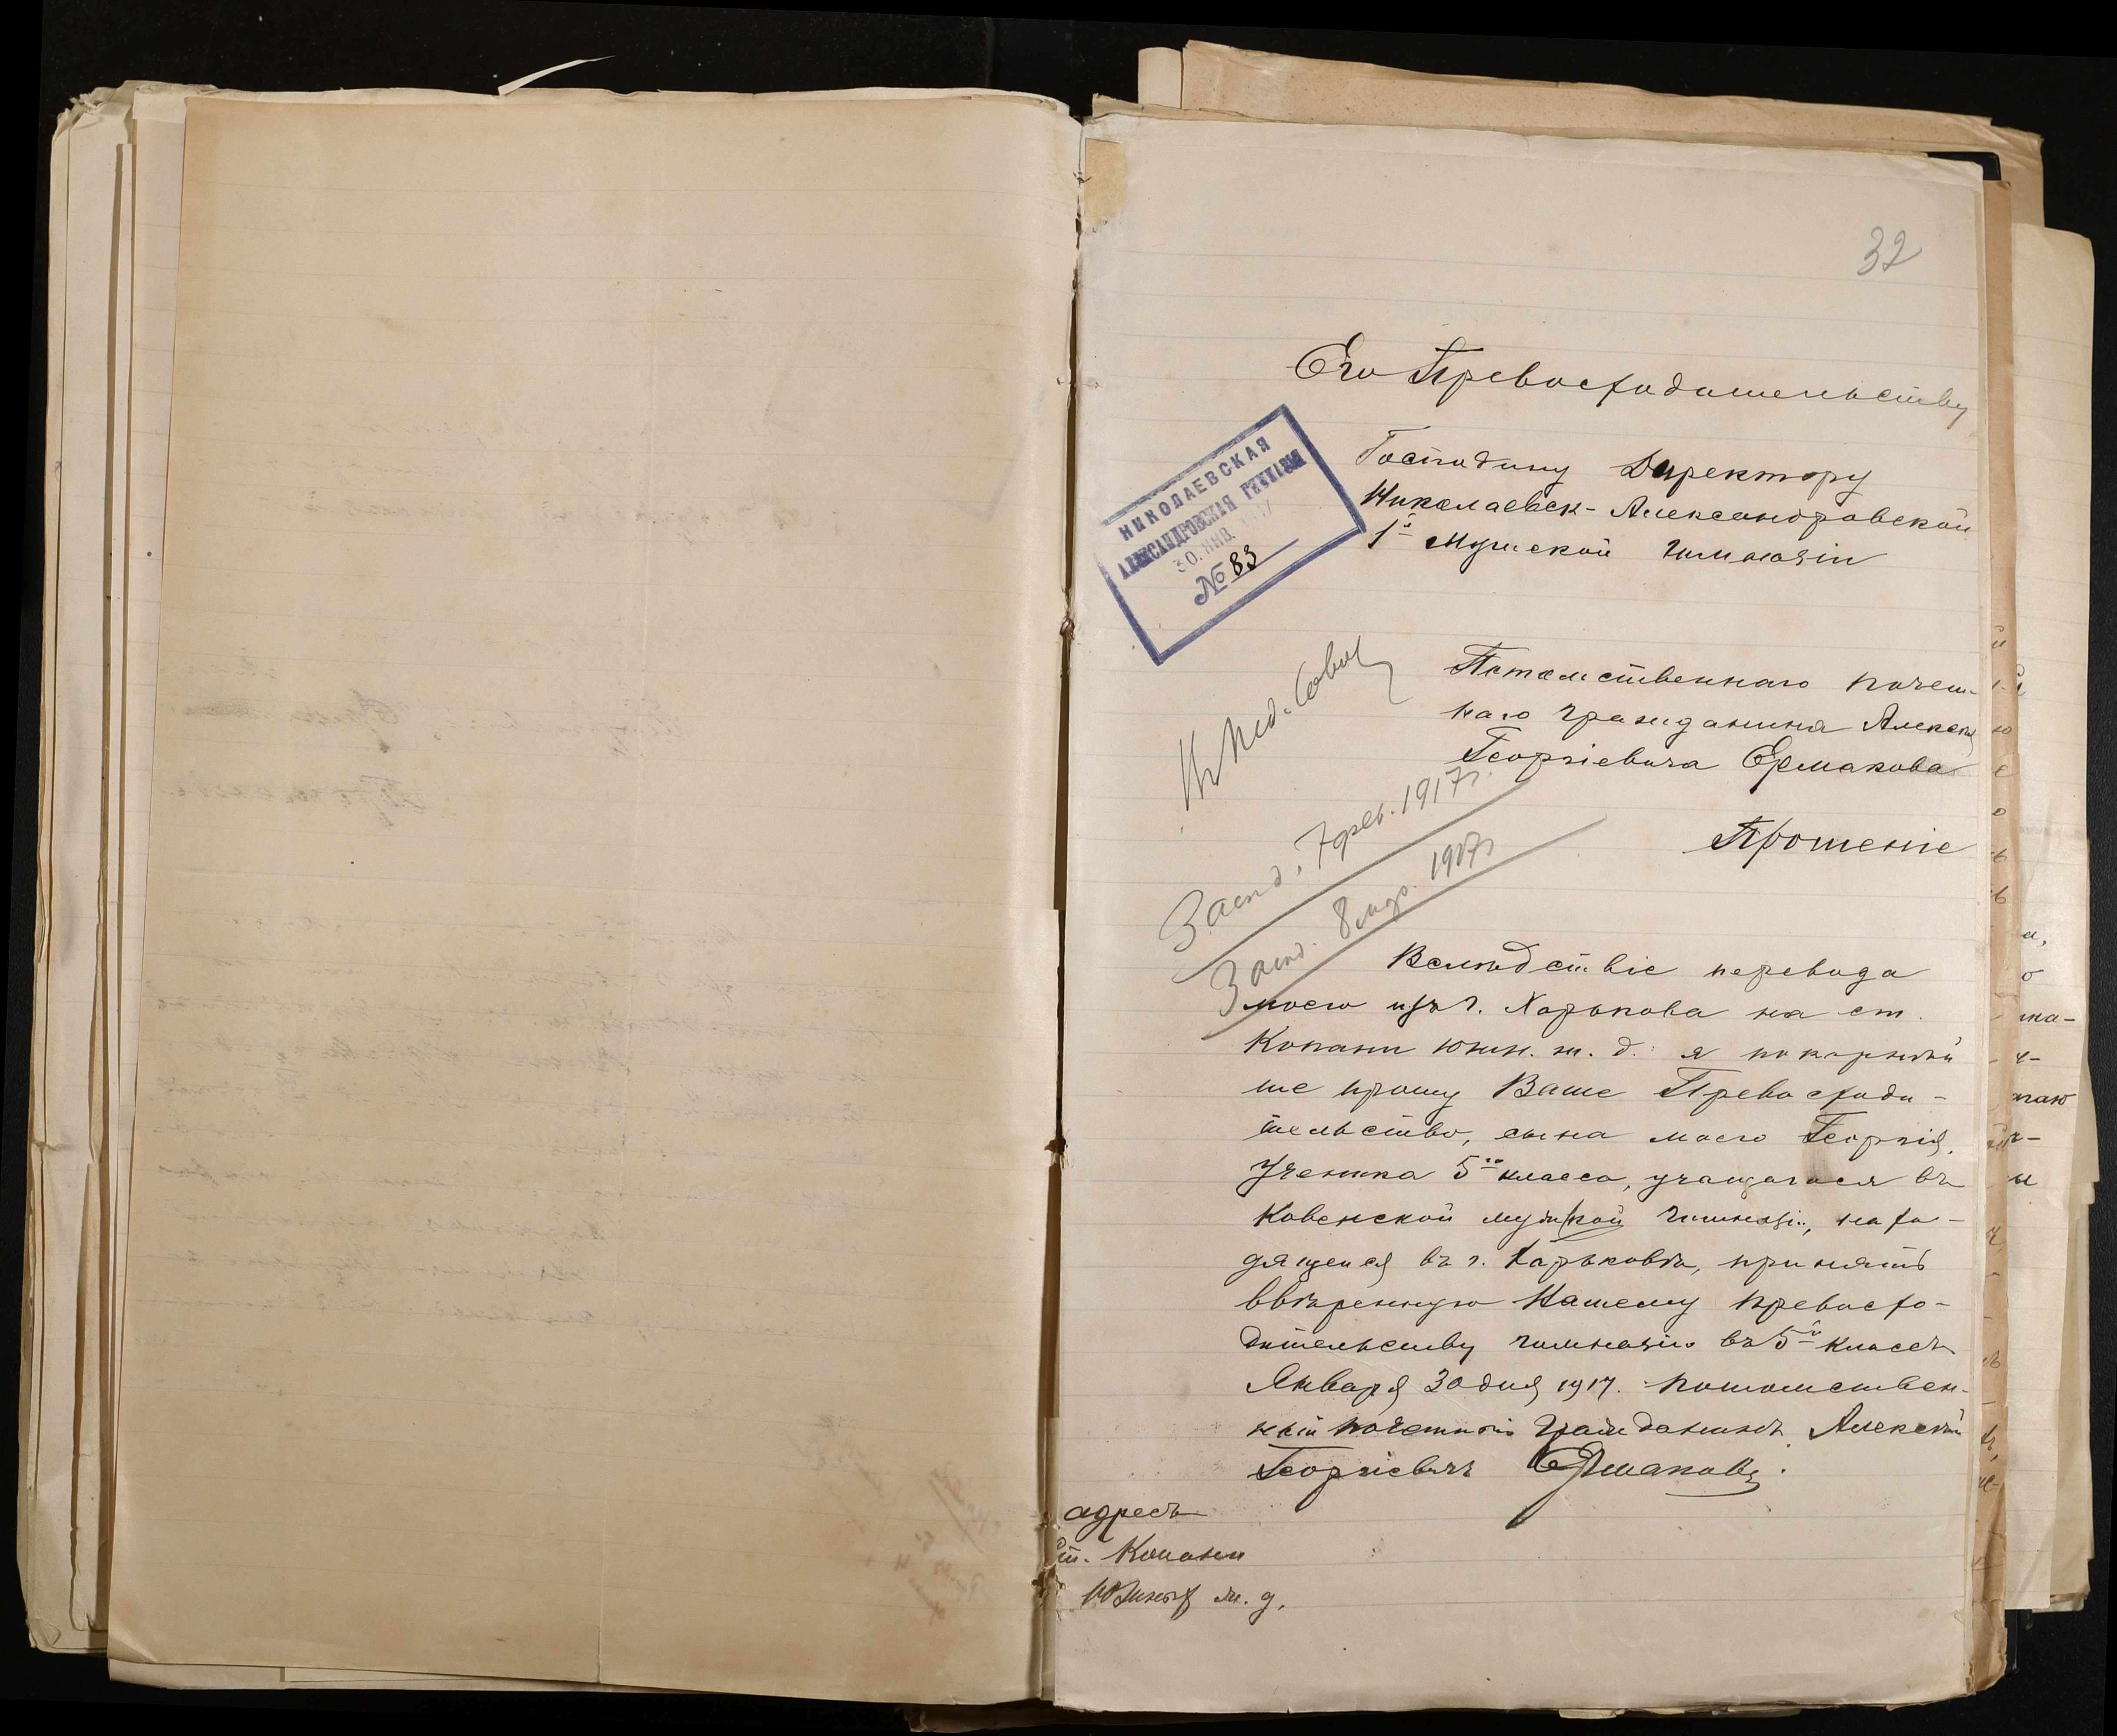 32
Его Превосходительству
Господину Директору
Николаевск-Александровской
1й Мужской гимназіи
НИКОЛАЕВСКАЯ
АЛЕКСАНДРОВСКАЯ ГИМНАЗІЯ
30. ЯНВ. 1917
№ 83
Въ Пед. Совѣт
Потомственнаго почет-
наго гражданина Алексѣя
Георгіевича Ермакова
Засѣд. 7 фев. 1917 г.
Засѣд. 8 мар. 1917 г.
Прошеніе
Вслѣдствіе перевода
моего изъ г. Харькова на ст.
Копани Южн. ж. д. я покорнѣй
ше прошу Ваше Превосходи-
тельство, сына моего Георгія,
Ученика 5го класса, учащагося въ
Ковенской мужской гимназіи, нахо-
дящейся въ г. Харьковѣ, принять
ввѣренную Вашему Превосхо-
дительству гимназію въ 5й классъ
Января 30 дня 1917. Потомствен-
ный почетный Гражданинъ Алексѣй
Георгіевичъ Ермаковъ.
адресъ
ст. Копани
Южныхъ ж. д.